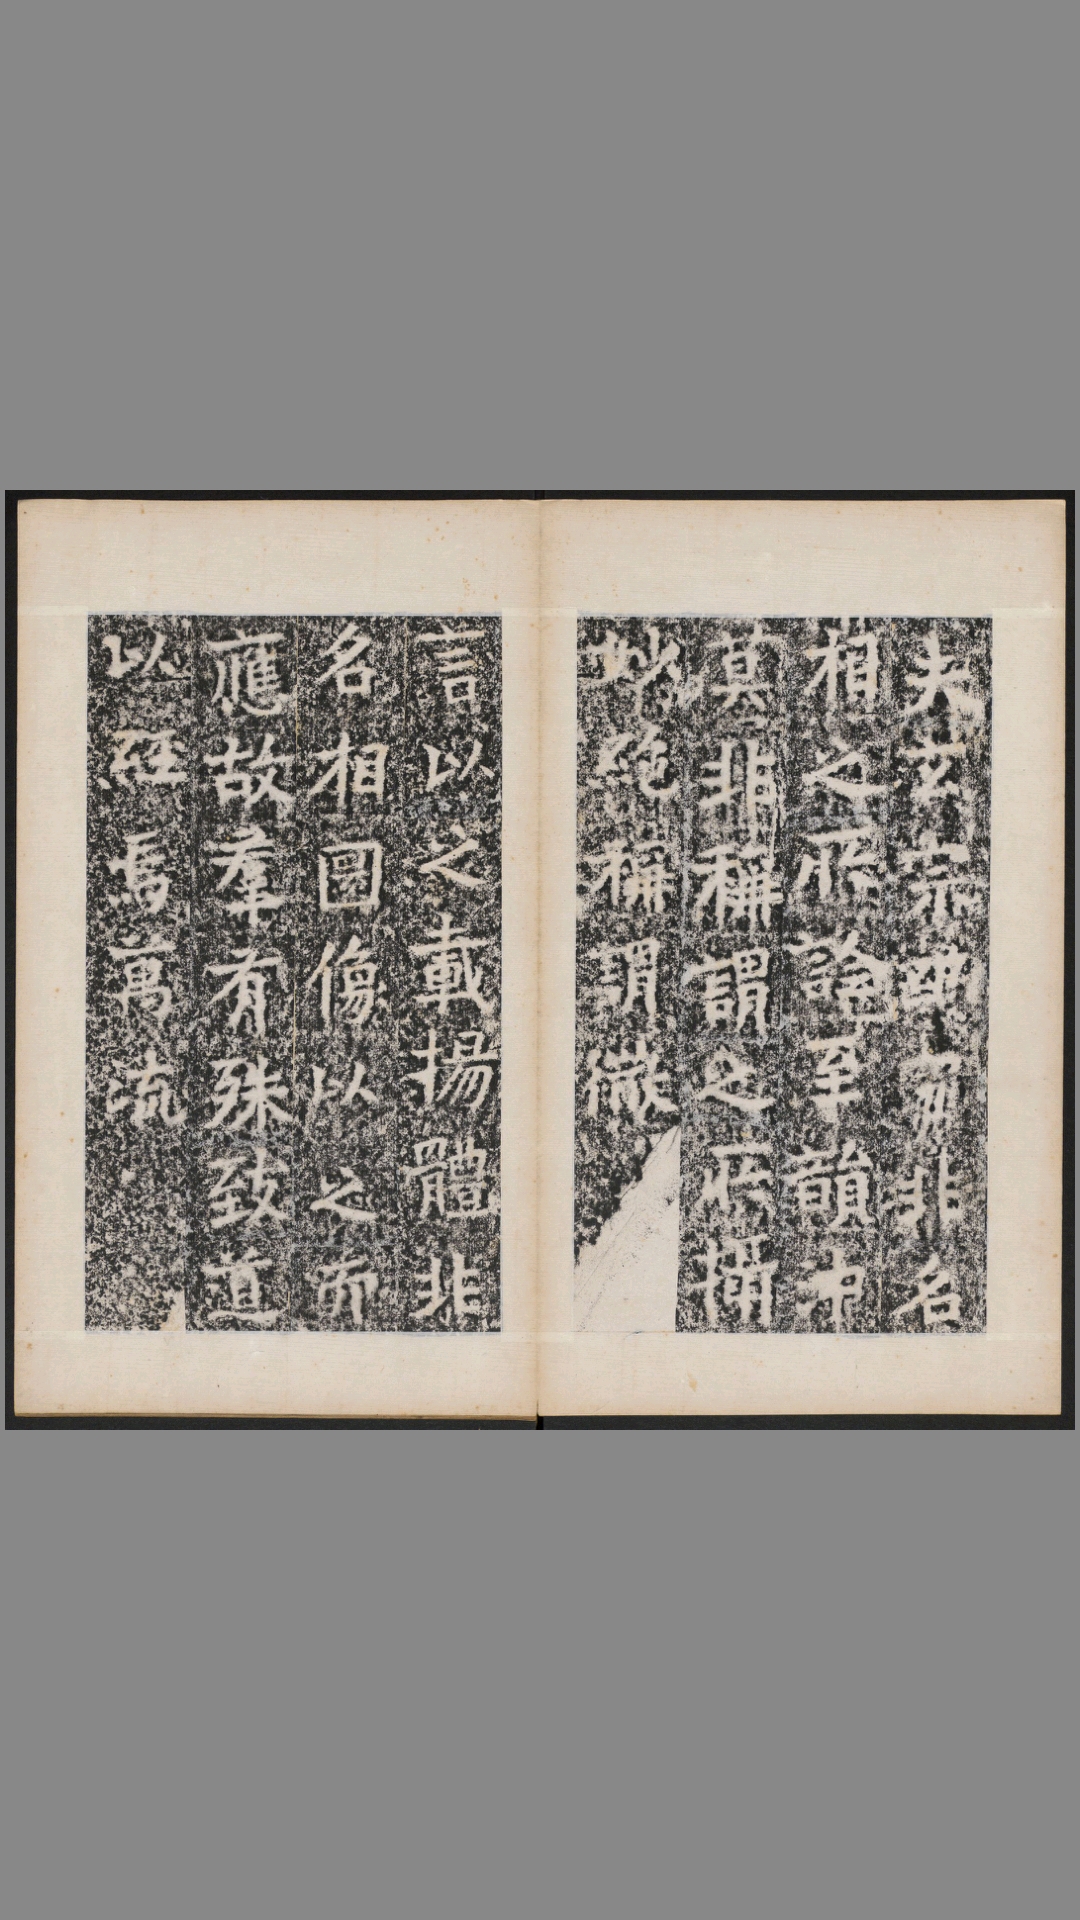 夫玄宗非名
相之所詮至韻冲
莫非稱謂之所
妙絕稱謂微
言以之載揚體非
名相圖像以之而
應故羣有殊致道
以經焉萬流